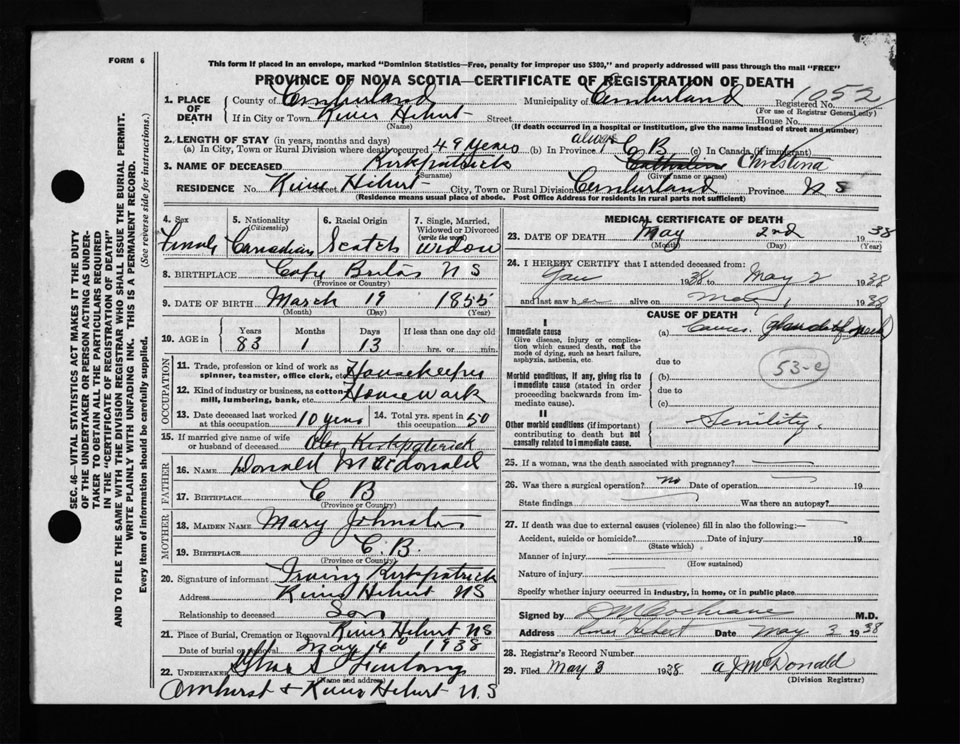 FORM 6
This form if placed in an envelope, marked "Dominion Statistics—Free, penalty for improper use $300," and properly addressed will pass through the mail "FREE"
PROVINCE OF NOVA SCOTIA—CERTIFICATE OF REGISTRATION OF DEATH
1052
1. PLACE OF DEATH County of Cumberland Municipality of Cumberland Registered No.
(For use of Registrar General only)
If in City or Town River Hebert Street House No.
(Name) (If death occurred in a hospital or institution, give the name instead of street and number)
2. LENGTH OF STAY (in years, months and days)
(a) In City, Town or Rural Division where death occurred 49 years (b) In Province always C B (c) In Canada (if immigrant)
3. NAME OF DECEASED Kirkpatrick Christina
(Surname) (Given name or names)
RESIDENCE No. Street River Hebert City, Town or Rural Division Cumberland Province N S
(Residence means usual place of abode. Post Office Address for residents in rural parts not sufficient)
4. Sex Female
5. Nationality (Citizenship) Canadian
6. Racial Origin Scotch
7. Single, Married, Widowed or Divorced (write the word) Widow
8. BIRTHPLACE Cape Breton N S
(Province or Country)
9. DATE OF BIRTH March 19 1855
(Month) (Day) (Year)
10. AGE in Years Months Days If less than one day old
83 1 13 hrs. or min.
OCCUPATION
11. Trade, profession or kind of work as spinner, teamster, office clerk, etc. Housekeeper
12. Kind of industry or business, as cotton mill, lumbering, bank, etc. Housework
13. Date deceased last worked at this occupation. 10 years 14. Total yrs. spent in this occupation 50
15. If married give name of wife or husband of deceased Kirkpatrick
FATHER
16. NAME Donald McDonald
17. BIRTHPLACE C B
(Province or Country)
MOTHER
18. MAIDEN NAME Mary Johnston
19. BIRTHPLACE C. B.
(Province or Country)
20. Signature of informant Irving Kirkpatrick
Address River Hebert N S
Relationship to deceased Son
21. Place of Burial, Cremation or Removal River Hebert N S
Date of burial or removal May 4 1938
22. UNDERTAKER Furlong
(Name and address)
Amherst & River Hebert N. S
MEDICAL CERTIFICATE OF DEATH
23. DATE OF DEATH May 2nd 1938
(Month) (Day)
24. I HEREBY CERTIFY that I attended deceased from:
Jan 1938 to May 2 1938
and last saw her alive on May 1 1938
CAUSE OF DEATH
I
Immediate cause
Give disease, injury or complication which caused death, not the mode of dying, such as heart failure, asphyxia, asthenia, etc.
(a) Cancer (Glands of neck)
due to
53-c
Morbid conditions, if any, giving rise to immediate cause (stated in order proceeding backwards from immediate cause).
(b)
due to
(c)
II
Other morbid conditions (if important) contributing to death but not causally related to immediate cause.
Senility.
25. If a woman, was the death associated with pregnancy?
26. Was there a surgical operation? No Date of operation 19
State findings Was there an autopsy?
27. If death was due to external causes (violence) fill in also the following:—
Accident, suicide or homicide? Date of injury 19
(State which)
Manner of injury
(How sustained)
Nature of injury
Specify whether injury occurred in industry, in home, or in public place
Signed by Cochrane M.D.
Address River Hebert Date May 2 1938
28. Registrar's Record Number
29. Filed May 3 1938 A J McDonald
(Division Registrar)
SEC. 46—VITAL STATISTICS ACT MAKES IT THE DUTY
OF THE UNDERTAKER OR PERSON ACTING AS UNDER-
TAKER TO OBTAIN ALL THE PARTICULARS REQUIRED
IN THE "CERTIFICATE OF REGISTRATION OF DEATH"
AND TO FILE THE SAME WITH THE DIVISION REGISTRAR WHO SHALL ISSUE THE BURIAL PERMIT.
WRITE PLAINLY WITH UNFADING INK. THIS IS A PERMANENT RECORD.
Every item of information should be carefully supplied. (See reverse side for instructions.)